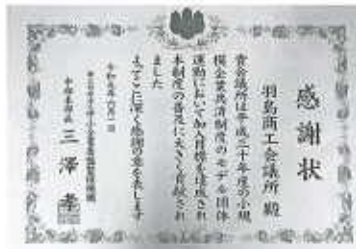 感謝状
羽島商工会議所 殿
貴会議所は平成三十年度の小規
模企業共済制度のモデル団体
運動において加入目標を達成され
本制度の普及に大きく貢献され
ました
よってここに深く感謝の意を表します
令和元年六月一日
三澤